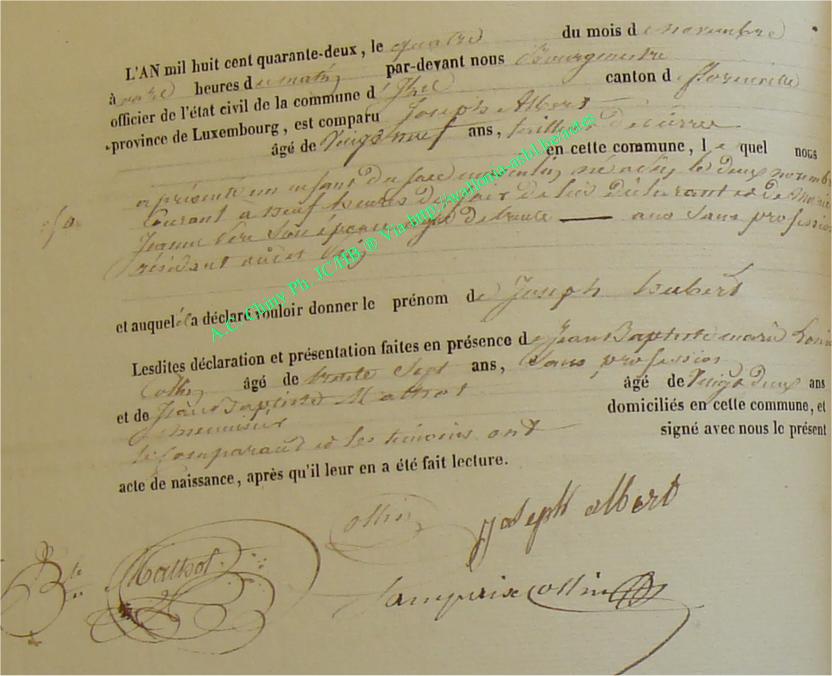 L'AN mil huit cent quarante-deux, le quatre du mois de novembre
à onze heures du matin par-devant nous Bourgmestre
officier de l'état civil de la commune d' canton de florenville
province de Luxembourg, est comparu Joseph Albert
âgé de Vingt neuf ans, tailleur de pierre
en cette commune, le quel nous
a présenté un enfant du sexe né le deux novembre
Courant à neuf heures du de lui Déclarant et de
Jeanne Son épouse agée de trente — ans Sans profession
résidant
et auquel il a déclaré vouloir donner le prénom de Joseph hubert
Lesdites déclaration et présentation faites en présence de Jean Baptiste marie
Collin âgé de trente Sept ans, Sans profession
et de Jean Baptiste Mathot âgé de Vingt deux ans
menuisier domiciliés en cette commune, et
le Comparant et les témoins ont signé avec nous le présent
acte de naissance, après qu'il leur en a été fait lecture.
Collin
Joseph albert
Mathot
Collin
A.C. Chiny Ph. JCHB ® Via http://wallonia-asbl.be/actes